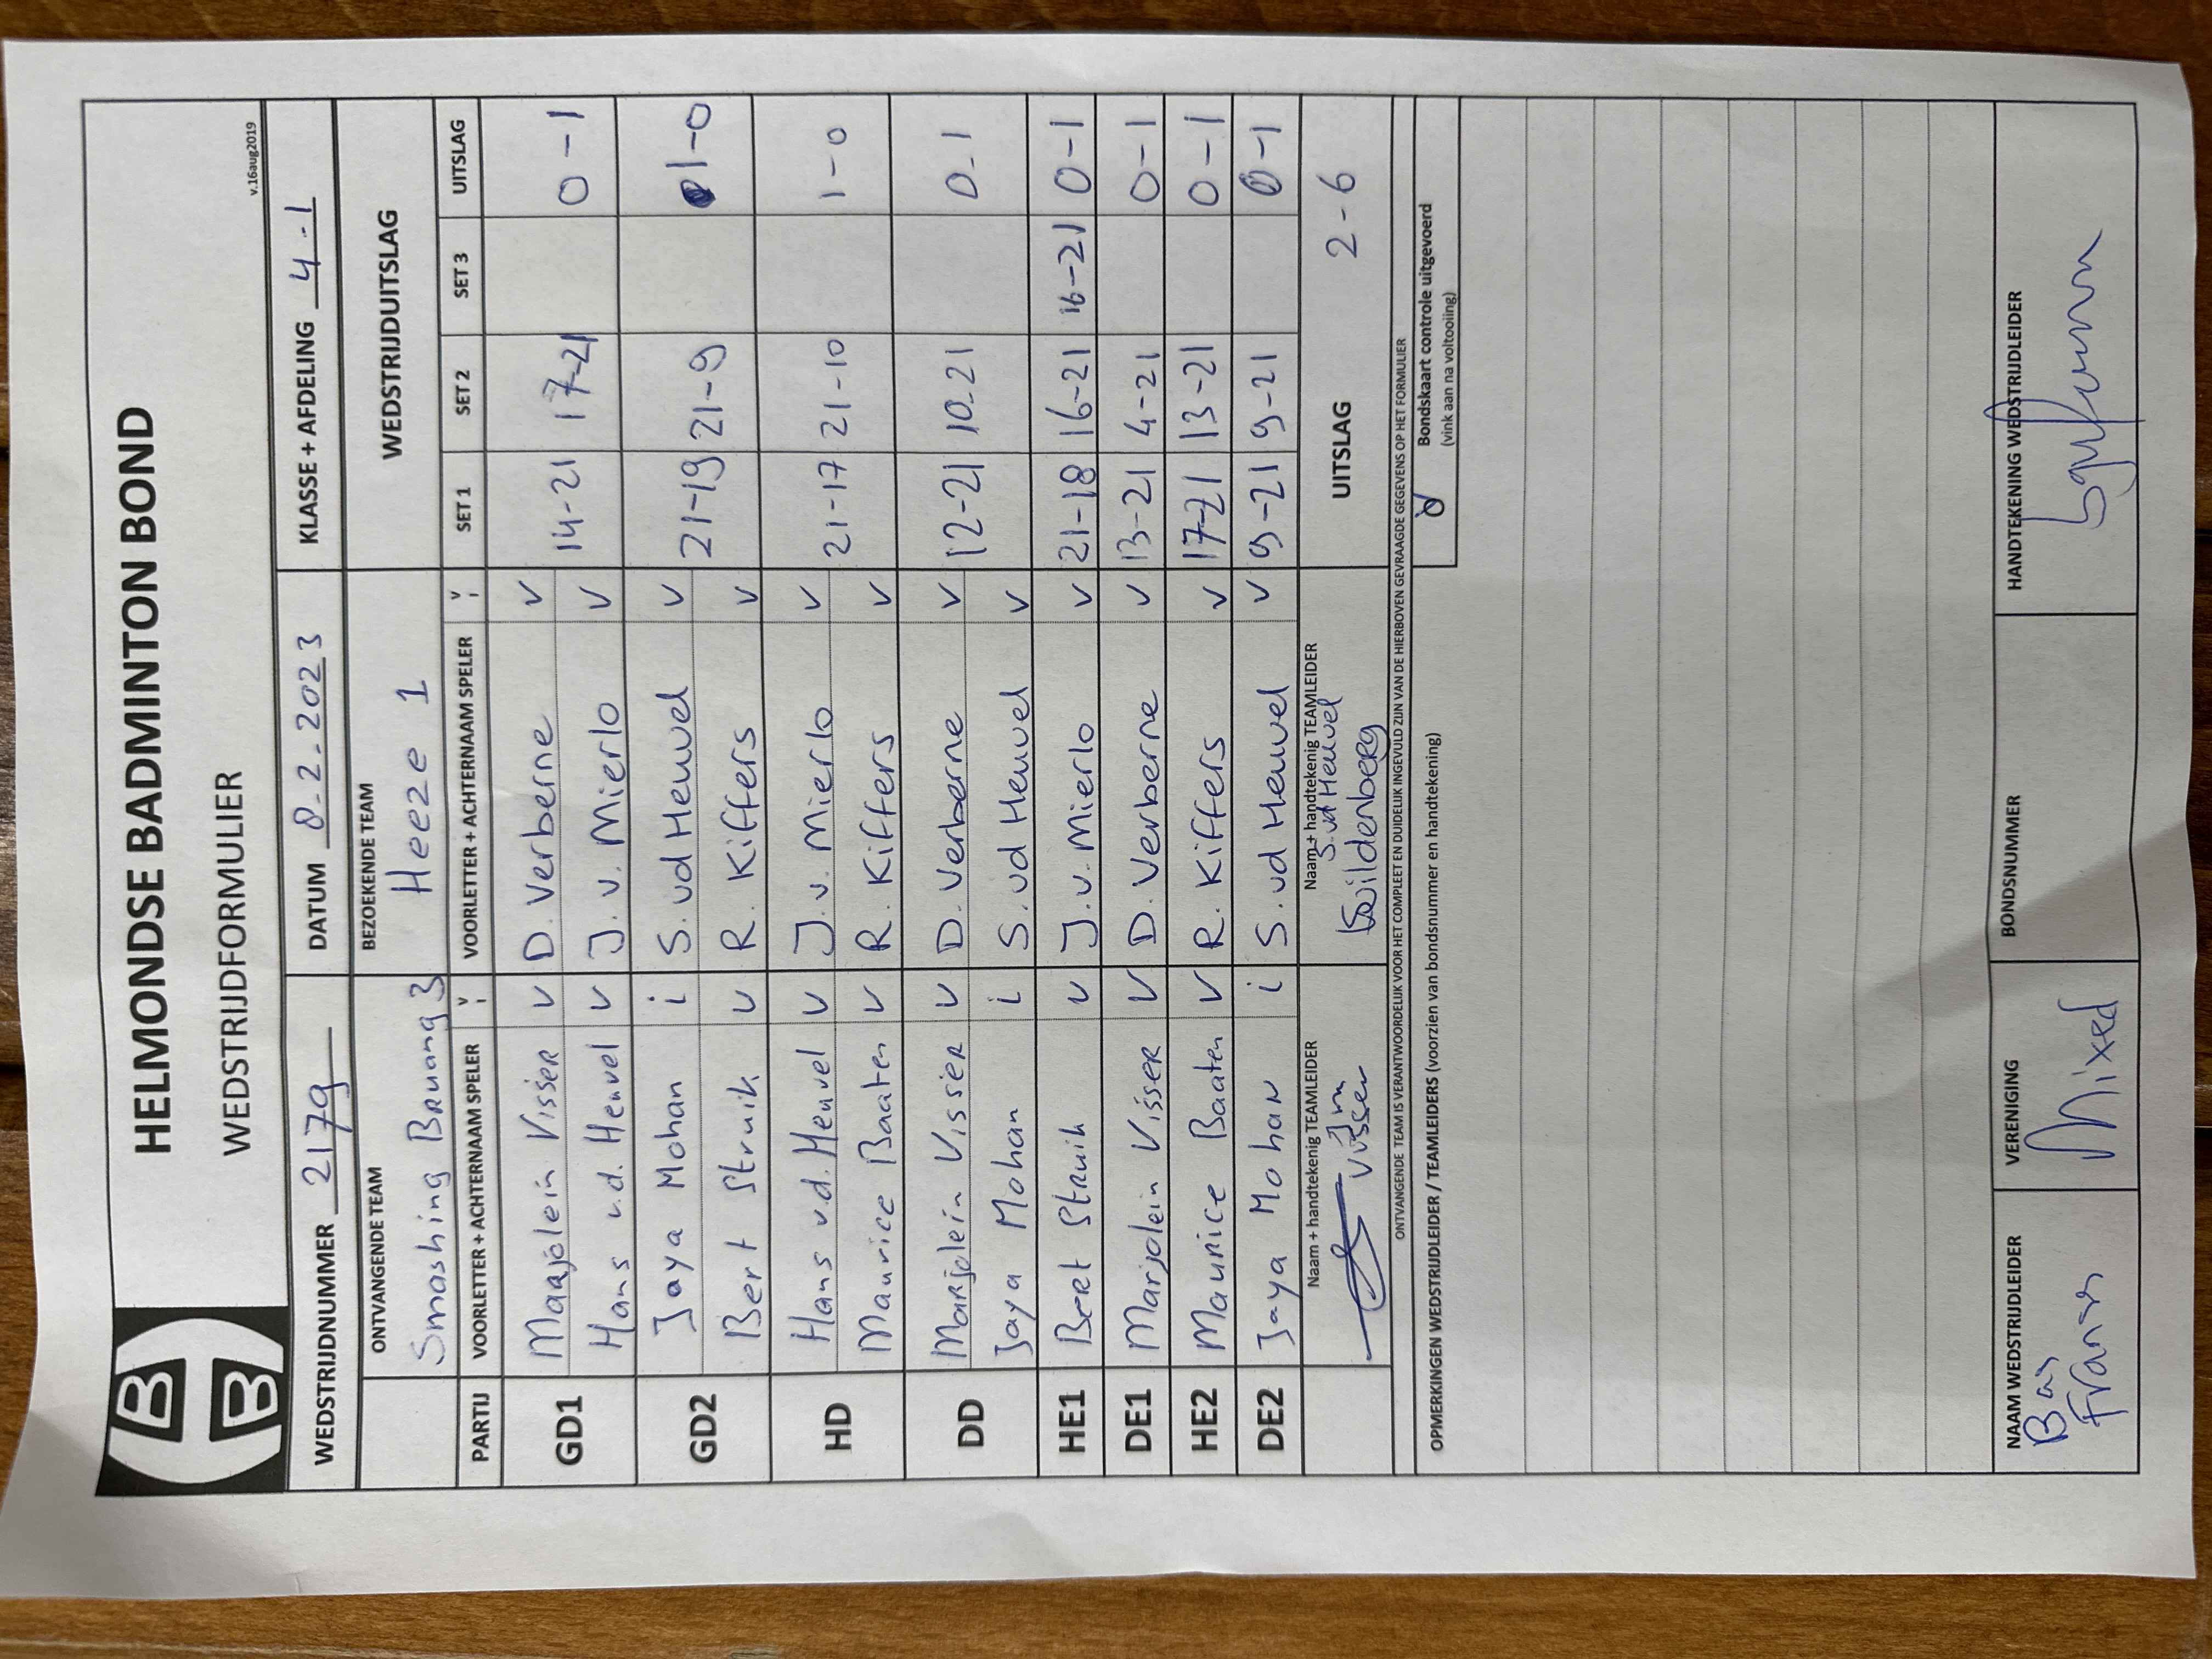 HELMONDSE BADMINTON BOND
WEDSTRIJDFORMULIER
v.16aug2019
WEDSTRIJDNUMMER 2179 DATUM 8-2-2023 KLASSE + AFDELING 4-1
ONTVANGENDE TEAM BEZOEKENDE TEAM WEDSTRIJDUITSLAG
Smashing Bruang 3 Heeze 1
PARTIJ VOORLETTER + ACHTERNAAM SPELER V i VOORLETTER + ACHTERNAAM SPELER V i SET 1 SET 2 SET 3 UITSLAG
GD1 Marjolein Visser v D. Verberne v 14-21 17-21 0-1
Hans v.d. Heuvel v J. v. Mierlo v
GD2 Jaya Mohan i S. vd Heuvel v 21-19 21-9 1-0
Bert Struik v R. Kiffers v
HD Hans v.d. Heuvel v J. v. Mierlo v 21-17 21-10 1-0
Maurice Baaten v R. Kiffers v
DD Marjolein Visser v D. Verberne v 12-21 10-21 0-1
Jaya Mohan i S. vd Heuvel v
HE1 Bert Struik v J. v. Mierlo v 21-18 16-21 16-21 0-1
DE1 Marjolein Visser v D. Verberne v 13-21 4-21 0-1
HE2 Maurice Baaten v R. Kiffers v 17-21 13-21 0-1
DE2 Jaya Mohan i S. vd Heuvel v 9-21 9-21 0-1
Naam + handtekenig TEAMLEIDER Naam + handtekenig TEAMLEIDER UITSLAG 2-6
Visser S. vd Heuvel
ONTVANGENDE TEAM IS VERANTWOORDELIJK VOOR HET COMPLEET EN DUIDELIJK INGEVULD ZIJN VAN DE HIERBOVEN GEVRAAGDE GEGEVENS OP HET FORMULIER
OPMERKINGEN WEDSTRIJDLEIDER / TEAMLEIDERS (voorzien van bondsnummer en handtekening)
Bondskaart controle uitgevoerd
(vink aan na voltooiing)
NAAM WEDSTRIJDLEIDER VERENIGING BONDSNUMMER HANDTEKENING WEDSTRIJDLEIDER
Bas
Mixed